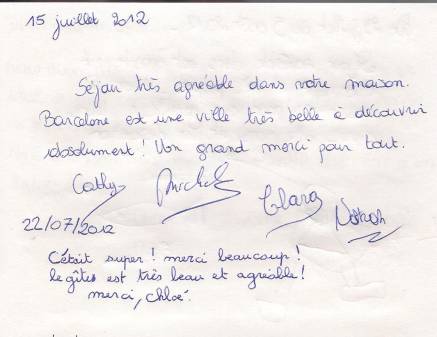 15 juillet 2012
Séjour très agréable dans votre maison.
Barcelone est une ville très belle à découvrir
absolument ! Un grand merci pour tout.
Cathy Michel Clara Norah
22/07/2012
C'était super ! merci beaucoup !
le gîtes est très beau et agréable !
merci, chloé.